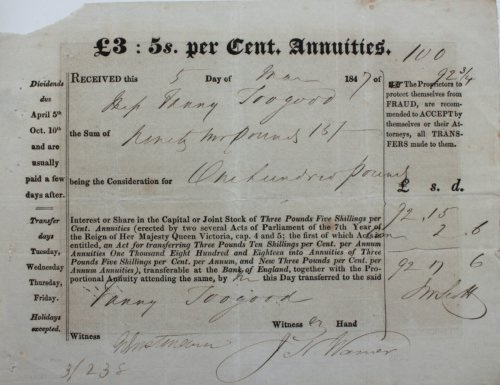 £3 : 5s. per Cent. Annuities.
100
92 3/4
Dividends
due
April 5th
Oct. 10th
and are
usually
paid a few
days after.
Transfer
days
Tuesday,
Wednesday
Thursday,
Friday.
Holidays
excepted.
RECEIVED this 5 Day of 1847 of
Fanny Toogood
the Sum of Pounds 15/
being the Consideration for One hundred pounds
Interest or Share in the Capital or Joint Stock of Three Pounds Five Shillings per
Cent. Annuities (erected by two several Acts of Parliament of the 7th Year of
the Reign of Her Majesty Queen Victoria, cap. 4 and 5; the first of which Acts is
entitled, an Act for transferring Three Pounds Ten Shillings per Cent. per Annum
Annuities One Thousand Eight Hundred and Eighteen into Annuities of Three
Pounds Five Shillings per Cent. per Annum, and New Three Pounds per Cent.
per Annum Annuities), transferable at the Bank of England, together with the Pro-
portional Anuity attending the same, by this Day transferred to the said
Fanny Toogood
Witness Hand
Witness
The Proprietors to
protect themselves from
FRAUD, are recom-
mended to ACCEPT by
themselves or their At-
torneys, all TRANS-
FERS made to them.
£ s. d.
92 15
2 6
92 17 6
3/238